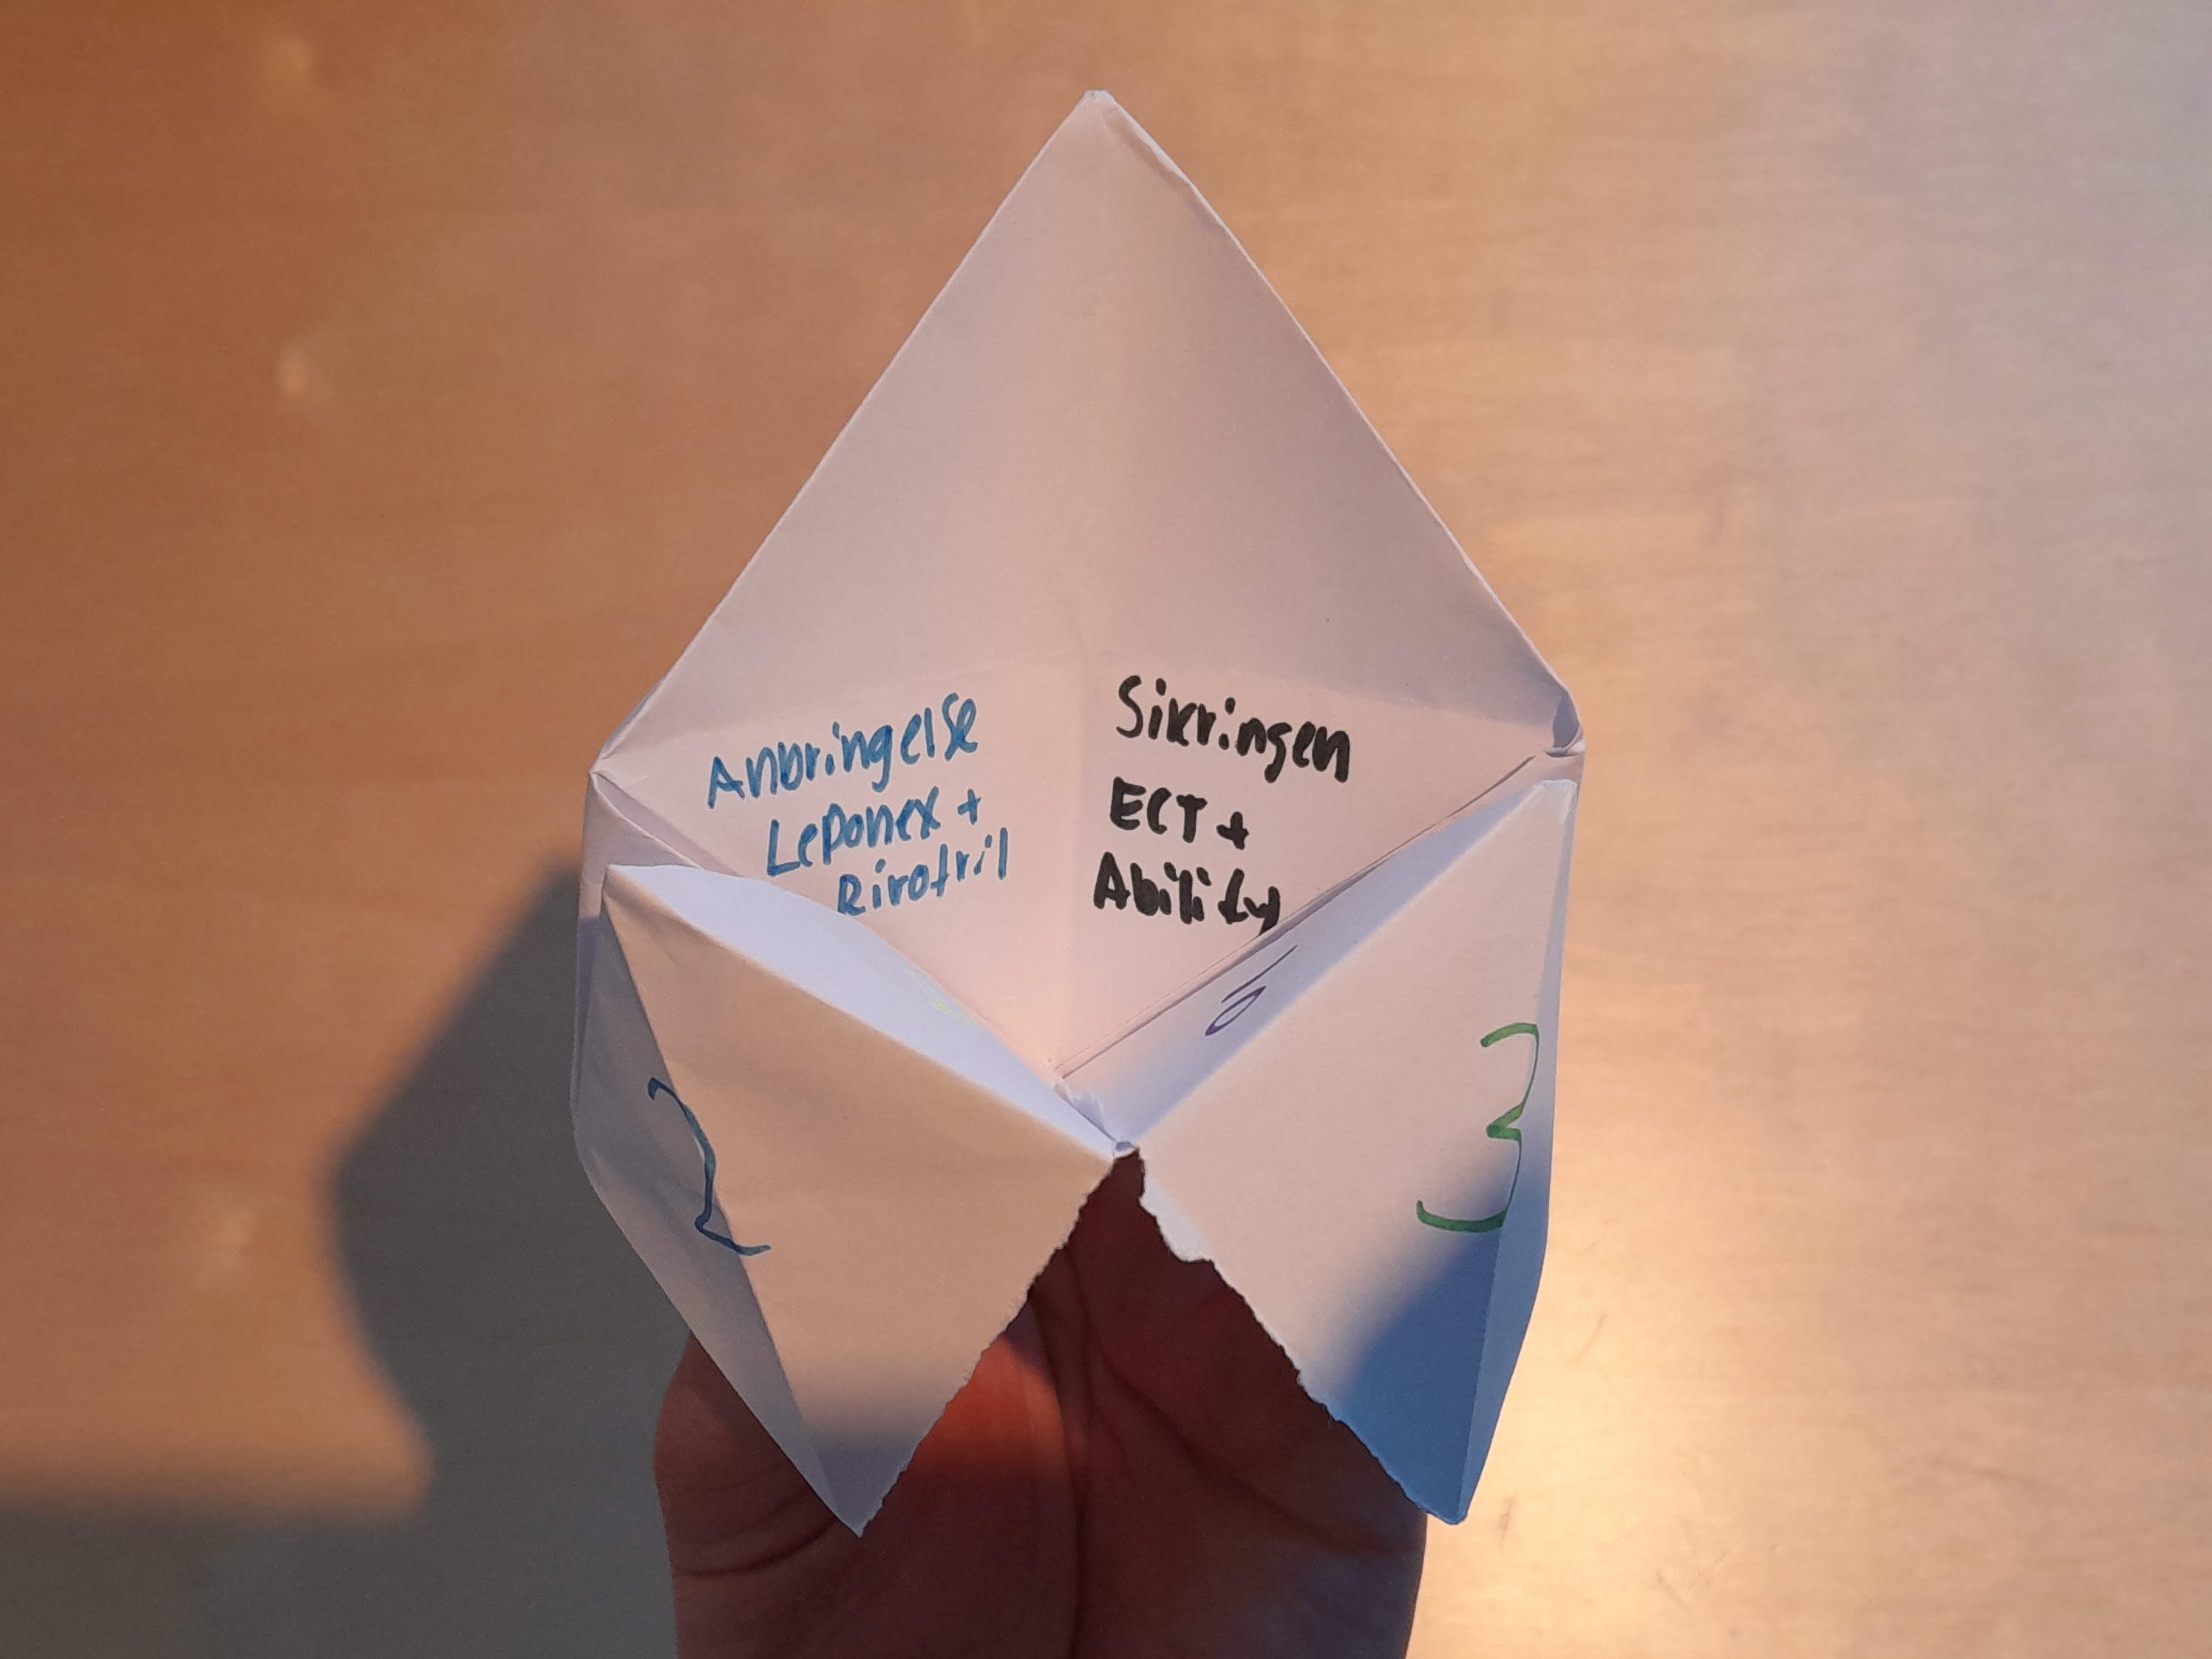 Anbringelse
Leponex +
Rivotril
Sikringen
ECT +
Ability
10
2
3